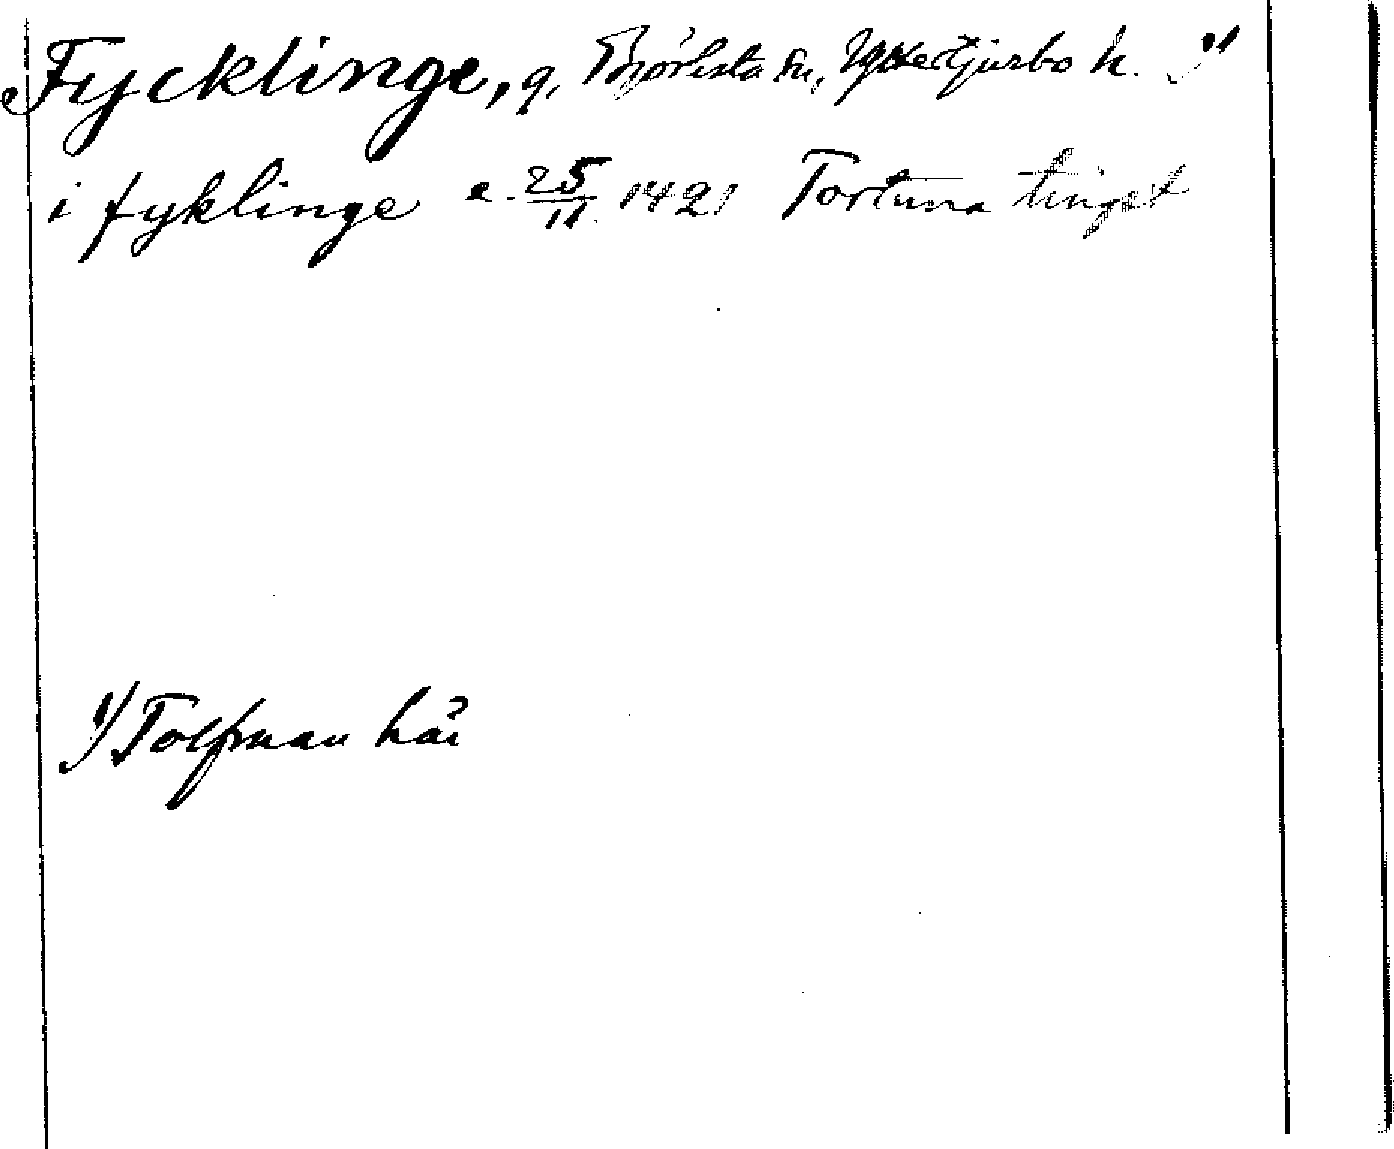 Fycklinge, g, Björksta sn, Yttertjurbo h. 1)
i fyklinge e. 25/11. 1421 Tortuna tinget
1) Tolfman här